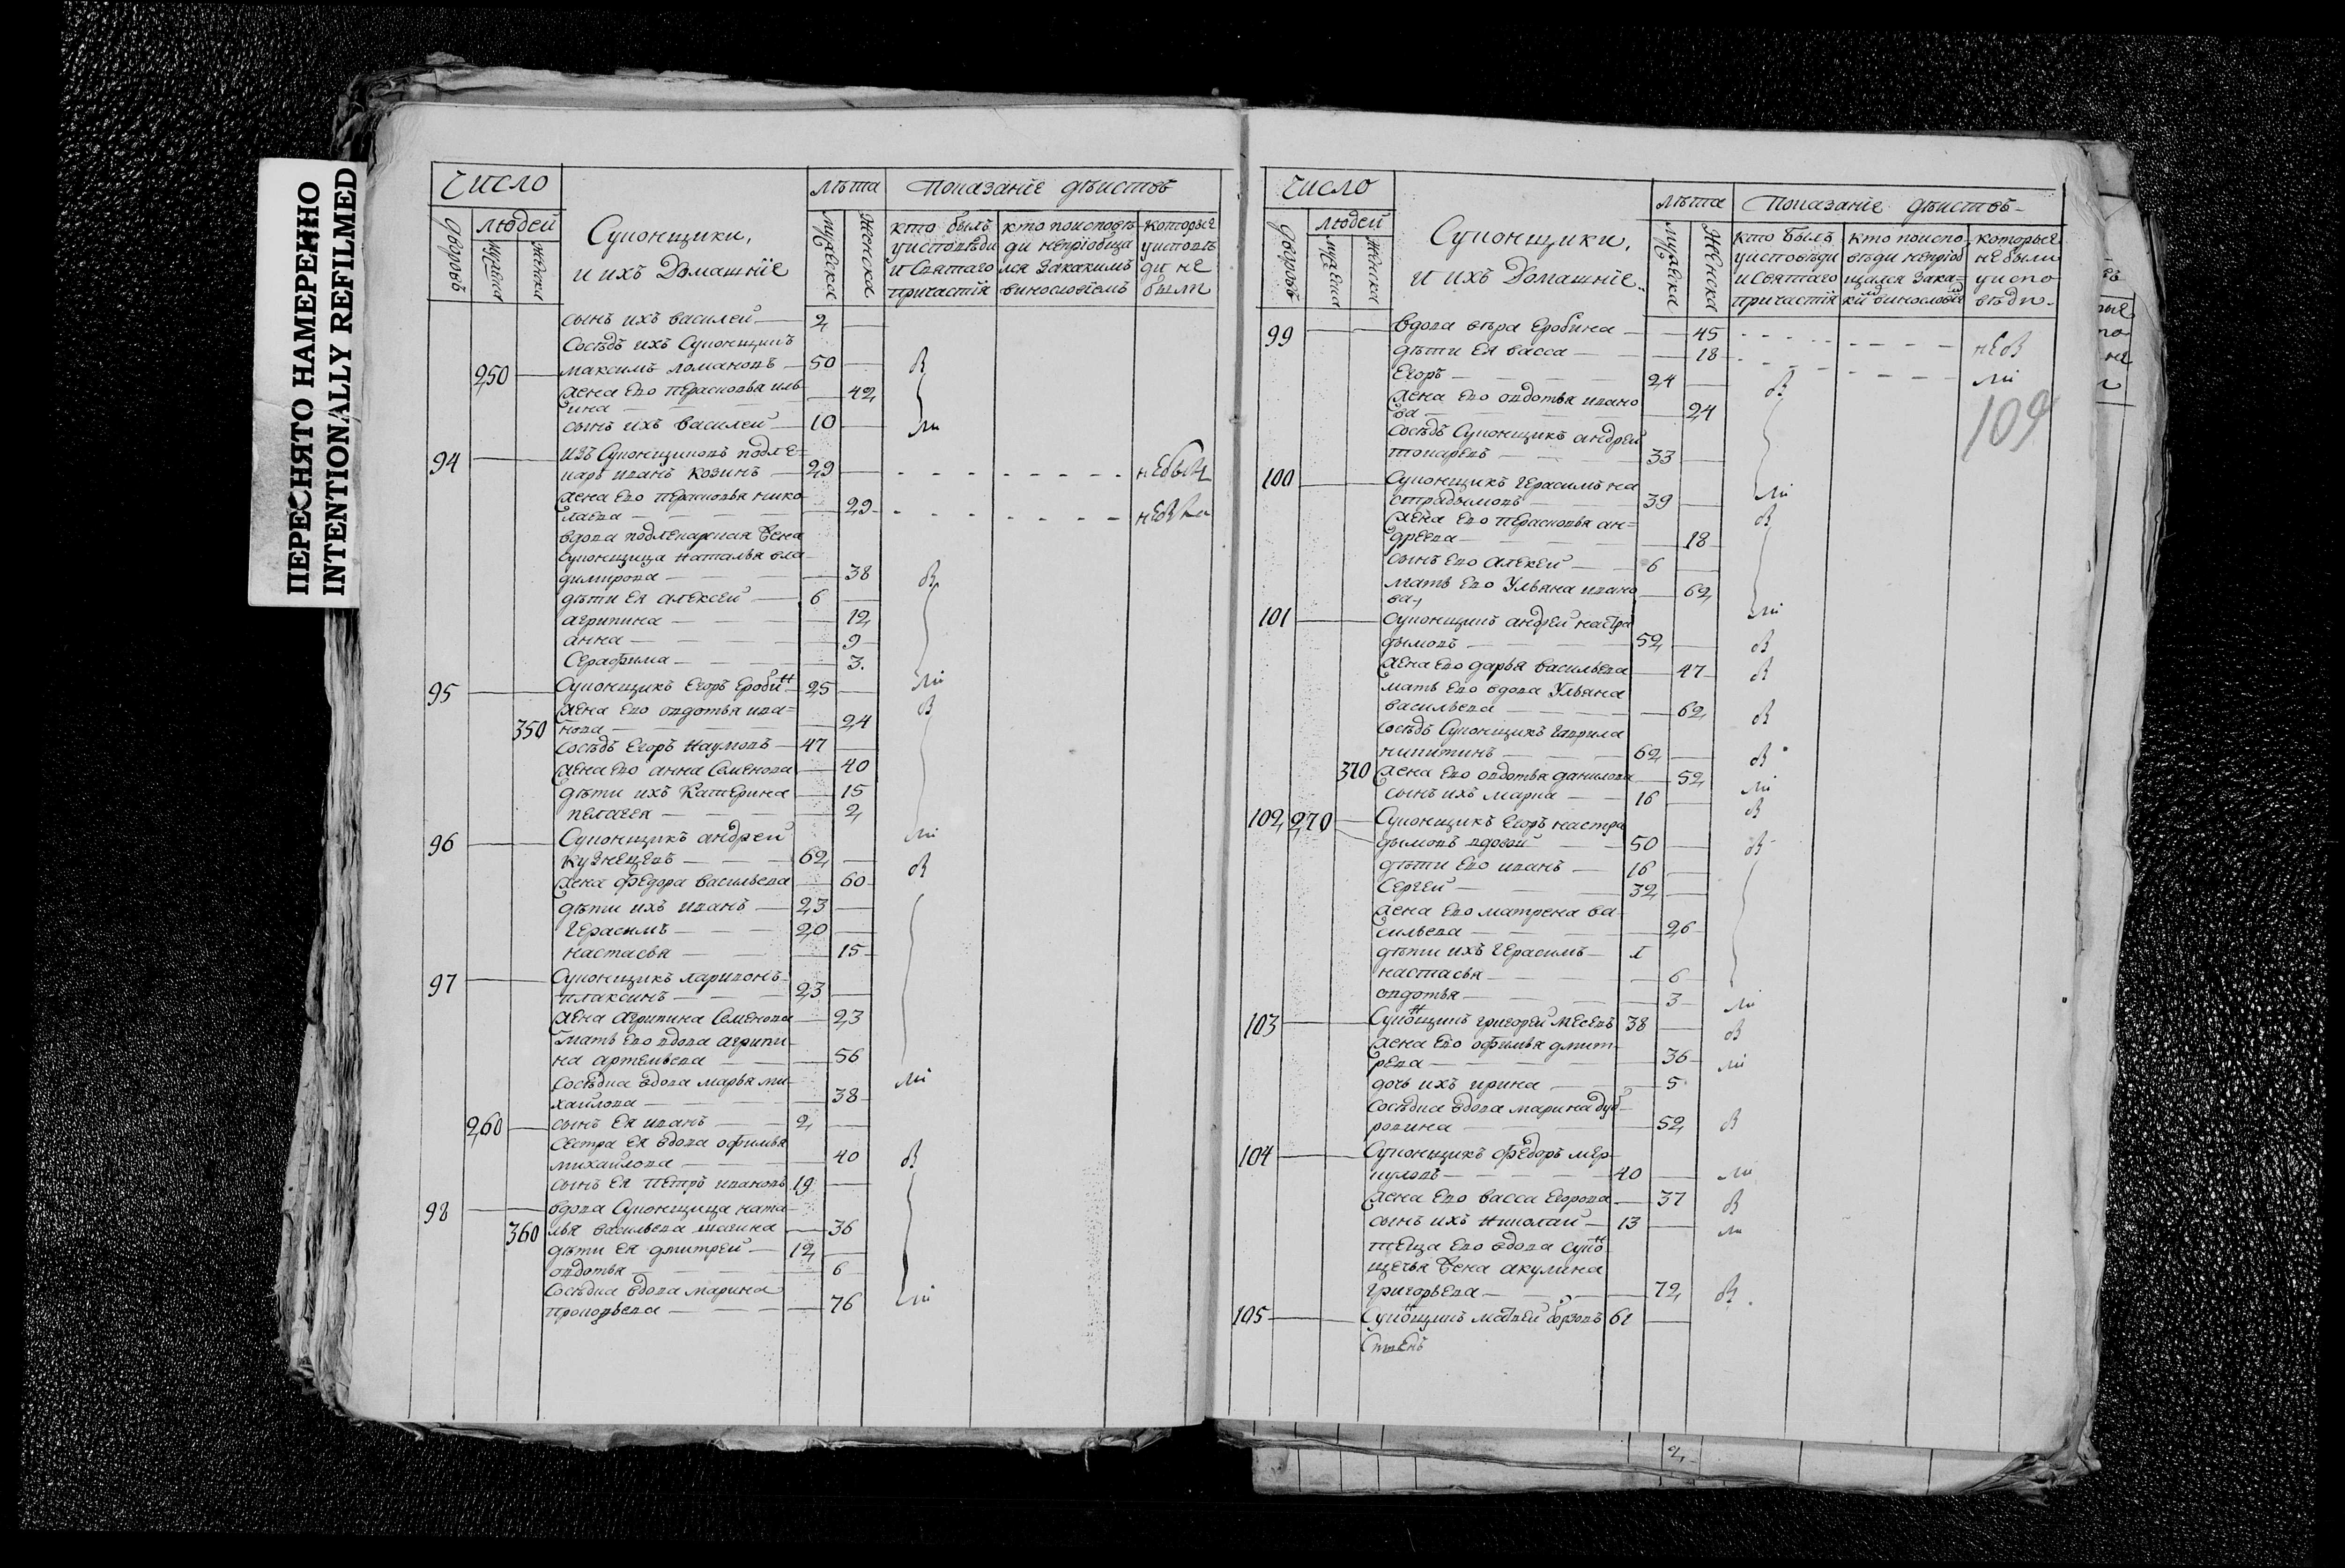 ПЕРЕСНЯТО НАМЕРЕННО
INTENTIONALLY REFILMED
Число
лѣта
Показанїе дѣиствъ
людей
дворовъ
мужеска
женска
Суконщики,
и ихъ Домашнїе
мужеска
Женска
кто былъ
уисповѣди
и Святаго
причастїя
кто поисповѣ
ди непрїобща
лся закакимъ
винословїемъ
которые
уисповѣ
ди не
были
сынъ ихъ василеи 2
Сосѣдъ ихъ Суконщикъ
250 максимъ ломановъ 50 в
жена ево перасковья иль
ина 42
сынъ ихъ василеи 10 ли
94 изъ Суконщиковъ подле=
карь иванъ козинъ 29 небылъ
жена ево перасковья нико
лаева 29
вдова подлекарская жена
суконщица наталья вла
димирова 38 в
дѣти ея алексеи 6
агрипина 12
анна 9
Серафима 3
95 Суконщикъ Егоръ Еробкин 25 ли
жена ево овдотья ива= в
350 нова 24
сосѣдъ Егоръ Наумовъ 47
жена ево анна Семенова 40
дѣти ихъ Катерина 15
пелагея 2
96 Суконщикъ андреи ли
кузнецовъ 62
жена федора васильева 60 в
дѣти ихъ иванъ 23
Герасимъ 20
настасья 15
97 Суконщикъ ларивонъ
плаксинъ 23
жена агрипина Семенова 23
мать ево вдова агрипи
на артемьева 56
сосѣдка вдова марья ми
хаилова 38 ли
260 сынъ ея иванъ 2
Сестра ея вдова офимья
михаилова 40 в
сынъ ея петръ ивановъ 19
98 вдова Суконщица ната
360 лья васильева шагина 36
дѣти ея дмитреи 12
овдотья 6
Сосѣдка вдова марина
прокофьева 76 ли
Число
лѣта
Показанїе дѣистѣ
людей
дворовъ
мужеска
женска
Суконщики,
и ихъ Домашнїе
мужеска
Женска
кто былъ
уисповѣди
и Святаго
причастїя
кто поиспо
вѣди непрїоб
щался зака=
ки винословїе
которые
небыли
уиспо
вѣди
99 вдова вѣра Еробкина 45 нев
дѣти ея васса 18 ли
Егоръ 24 в
109
жена ево овдотья ивано
ва 24
сосѣдъ Суконщикъ андреи
токаревъ 33
100 Суконщикъ Герасимъ на
страдымовъ 39 ли
жена ево перасковья ан= в
дреева 18
сынъ ево алексеи 6
мать ево Ульяна ивано
ва 62
101 Суконщикъ андреи настра ли
дымовъ 52 в
жена ево дарья васильева 47 в
мать ево вдова Ульяна
васильева 62 в
сосѣдъ Суконщикъ гаврила
никитинъ 62 в
370 жена ево овдотья данилова 52 ли
сынъ ихъ марка 16 в
102 270 Суконщикъ Егоръ настра
дымовъ вдовой 50 в
дѣти ево иванъ 16
Сергеи 32
жена ево матрена ва
сильева 26
дѣти ихъ Герасимъ 1
настасья 6
овдотья 3 ли
103 Суконщикъ григореи 38 в
жена ево офимья дмит
реева 36 ли
дочь ихъ ирина 5
сосѣдка вдова марина дуб
ровина 52 в
104 Суконщикъ Федоръ мер
куловъ 40 ли
жена ево васса Егорова 37 в
сынъ ихъ Николаи 13 ли
теща ево вдова суко
щечья жена акулина
григорьева 72 в
105 Суконщикъ матвеи 61
2